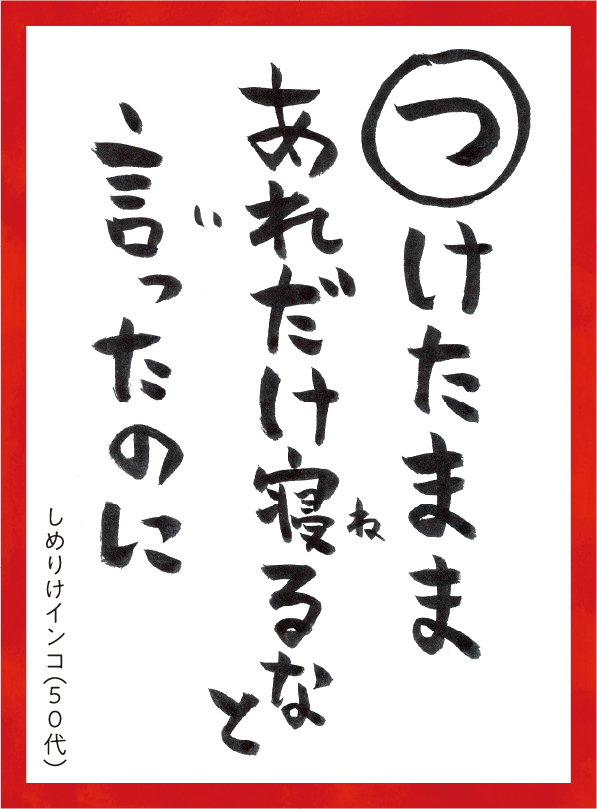 つけたまま
あれだけ寝るなと
ね
言ったのに
い
しめりけインコ(50代)